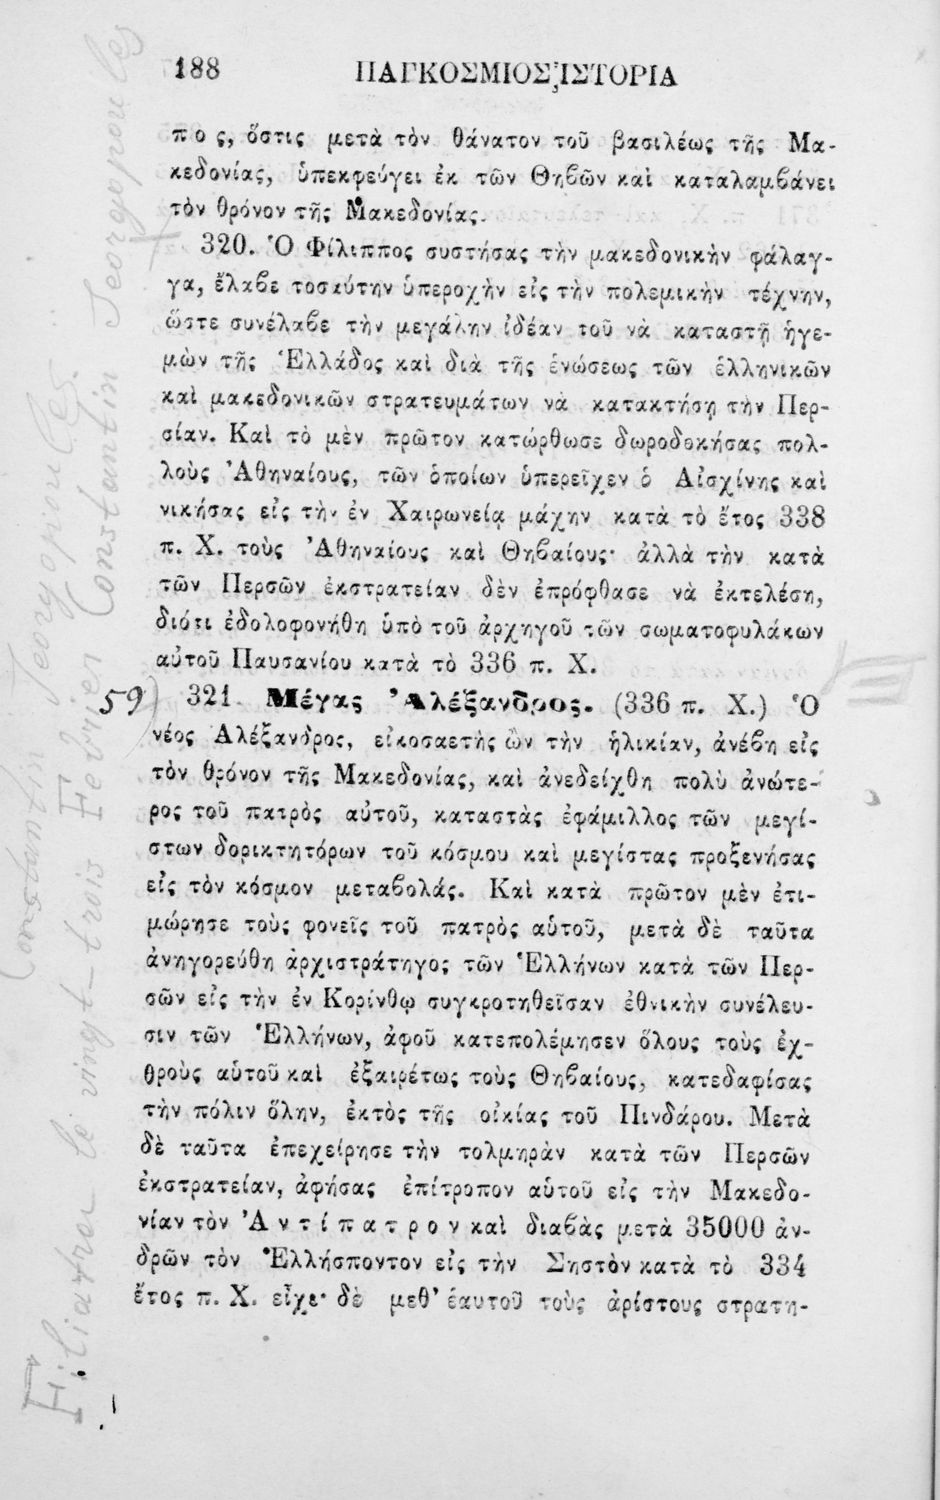 188 ΠΑΓΚΟΣΜΙΟΣ ἹΣΤΟΡΙΑ
πος, ὅστις μετὰ τὸν θάνατον τοῦ βασιλέως τῆς Μα-
κεδονίας, ὑπεκφεύγει ἐκ τῶν Θηβῶν καὶ καταλαμβάνει
τὸν θρόνον τῆς Μακεδονίας.
320. Ὁ Φίλιππος συστήσας τὴν μακεδονικὴν φάλαγ-
γα, ἔλαβε τοσαύτην ὑπεροχὴν εἰς τὴν πολεμικὴν τέχνην,
ὥστε συνέλαβε τὴν μεγάλην ἰδέαν τοῦ νὰ καταστῇ ἡγε-
μὼν τῆς Ἑλλάδος καὶ διὰ τῆς ἑνώσεως τῶν ἑλληνικῶν
καὶ μακεδονικῶν στρατευμάτων νὰ κατακτήσῃ τὴν Περ-
σίαν. Καὶ τὸ μὲν πρῶτον κατώρθωσε δωροδοκήσας πολ-
λοὺς Ἀθηναίους, τῶν ὁποίων ὑπερεῖχεν ὁ Αἰσχίνης καὶ
νικήσας εἰς τὴν ἐν Χαιρωνείᾳ μάχην κατὰ τὸ ἔτος 338
π. Χ. τοὺς Ἀθηναίους καὶ Θηβαίους· ἀλλὰ τὴν κατὰ
τῶν Περσῶν ἐκστρατείαν δὲν ἐπρόφθασε νὰ ἐκτελέσῃ,
διότι ἐδολοφονήθη ὑπὸ τοῦ ἀρχηγοῦ τῶν σωματοφυλάκων
αὐτοῦ Παυσανίου κατὰ τὸ 336 π. Χ.
59) 321. Μέγας Ἀλέξανδρος. (336 π. Χ.) Ὁ
νέος Ἀλέξανδρος, εἰκοσαετὴς ὢν τὴν ἡλικίαν, ἀνέβη εἰς
τὸν θρόνον τῆς Μακεδονίας, καὶ ἀνεδείχθη πολὺ ἀνώτε-
ρος τοῦ πατρὸς αὐτοῦ, καταστὰς ἐφάμιλλος τῶν μεγί-
στων δορικτητόρων τοῦ κόσμου καὶ μεγίστας προξενήσας
εἰς τὸν κόσμον μεταβολάς. Καὶ κατὰ πρῶτον μὲν ἐτι-
μώρησε τοὺς φονεῖς τοῦ πατρὸς αὑτοῦ, μετὰ δὲ ταῦτα
ἀνηγορεύθη ἀρχιστράτηγος τῶν Ἑλλήνων κατὰ τῶν Περ-
σῶν εἰς τὴν ἐν Κορίνθῳ συγκροτηθεῖσαν ἐθνικὴν συνέλευ-
σιν τῶν Ἑλλήνων, ἀφοῦ κατεπολέμησεν ὅλους τοὺς ἐχ-
θροὺς αὑτοῦ καὶ ἐξαιρέτως τοὺς Θηβαίους, κατεδαφίσας
τὴν πόλιν ὅλην, ἐκτὸς τῆς οἰκίας τοῦ Πινδάρου. Μετὰ
δὲ ταῦτα ἐπεχείρησε τὴν τολμηρὰν κατὰ τῶν Περσῶν
ἐκστρατείαν, ἀφήσας ἐπίτροπον αὑτοῦ εἰς τὴν Μακεδο-
νίαν τὸν Ἀντίπατρον καὶ διαβὰς μετὰ 35000 ἀν-
δρῶν τὸν Ἑλλήσποντον εἰς τὴν Σηστὸν κατὰ τὸ 334
ἔτος π. Χ. εἶχε· δὲ μεθ' ἑαυτοῦ τοὺς ἀρίστους στρατη-
Constantin Georgopoulos
Filiatra le vingt-trois Fevrier Constantin Georgopoulos